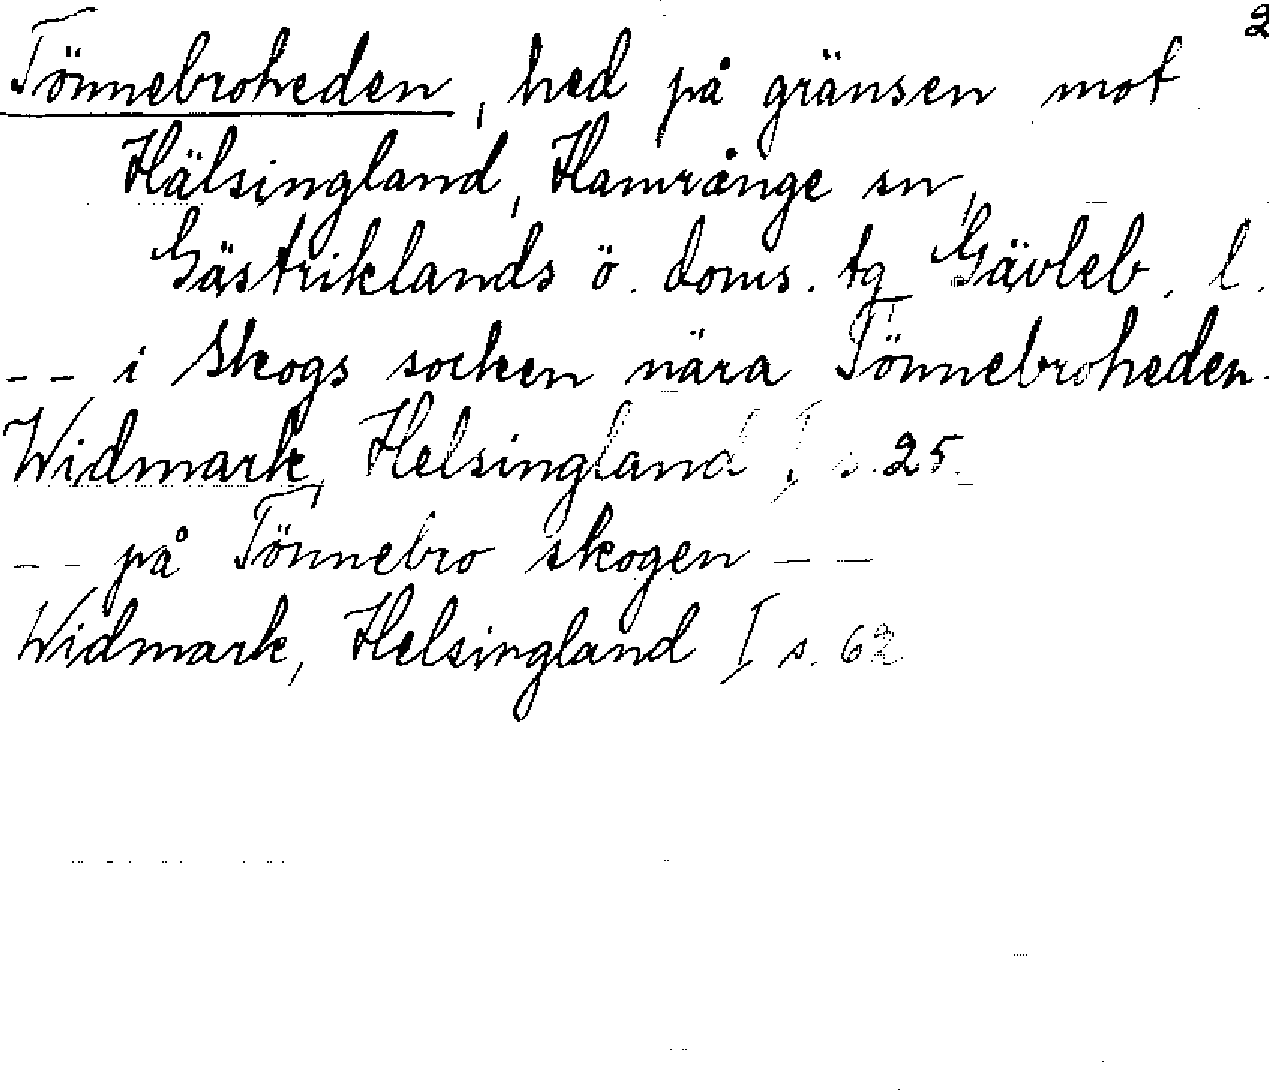 2
Tönnebroheden, hed på gränsen mot
Hälsingland, Hamrånge sn,
Gästriklands ö. doms. tg Gävleb. l.
-- i Skogs socken nära Tönnebroheden.
Widmark, Helsingland I s. 25.
-- på Tönnebro skogen --
Widmark, Helsingland I s. 62